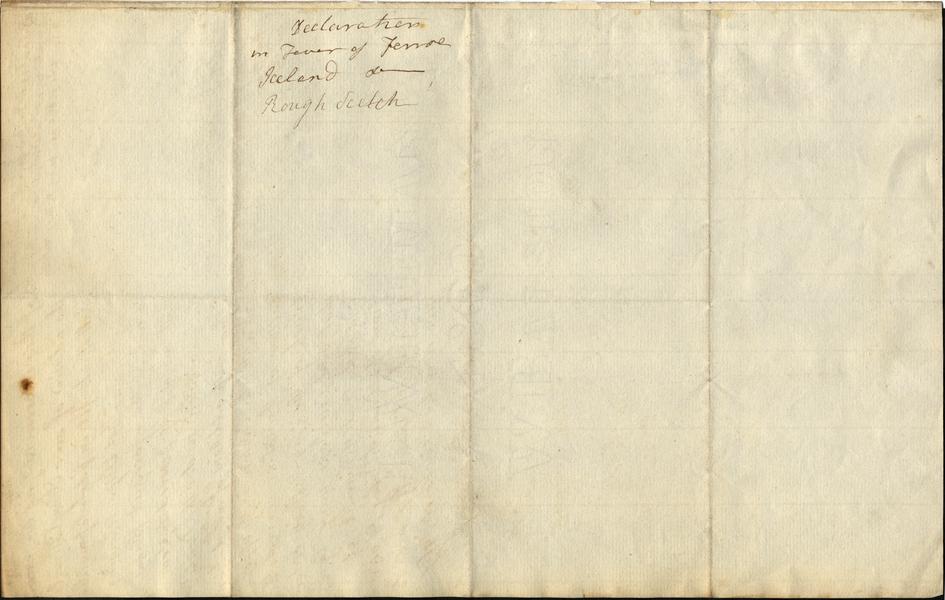 Declaration
in Favor of Ferroe
Iceland &c
Rough Sketch